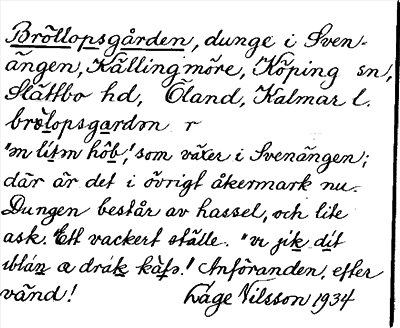 Bröllopsgården, dunge i Sven-
ängen, Källingmöre, Köping sn,
Slättbo hd, Öland, Kalmar l.
brölopsgardın r
"ın lítın hôb," som växer i Svenängen;
där är det i övrigt åkermark nu.
Dungen består av hassel, och lite
ask. "Ett vackert ställe. "vi jik dit
ıblán æ drák käfə." Anföranden, efter
vänd! Låge Nilsson 1934